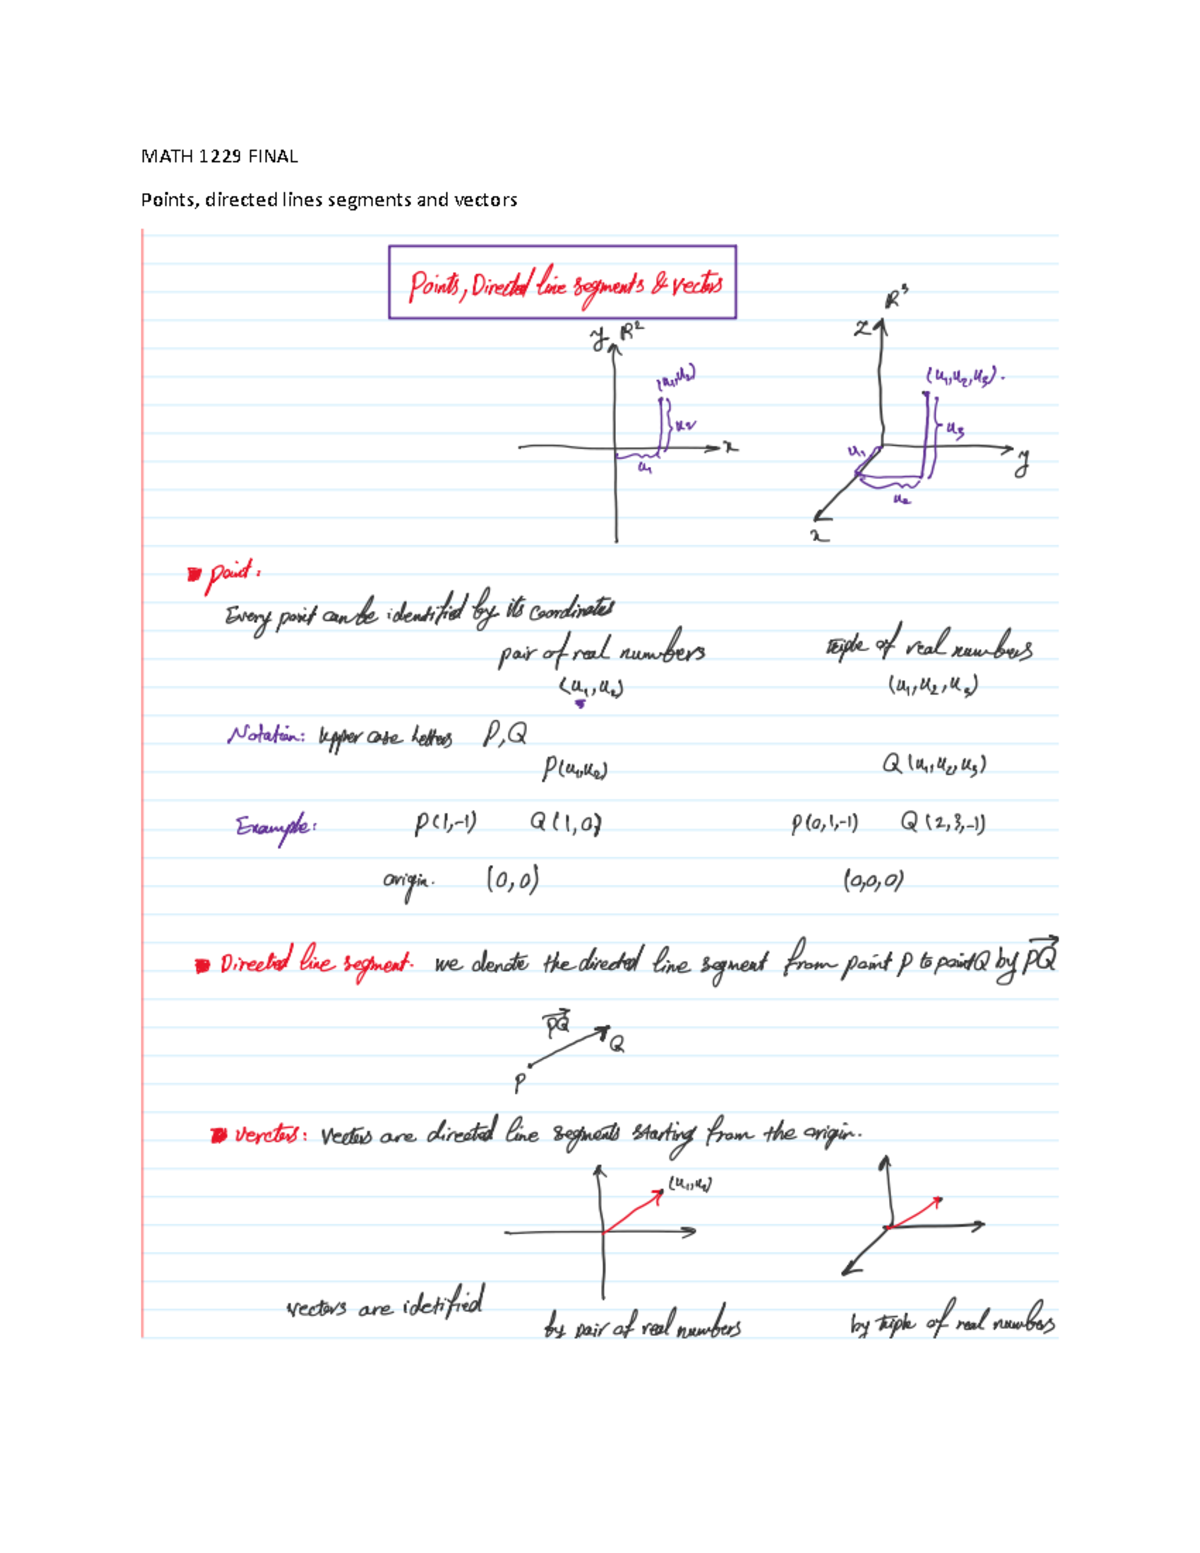 MATH 1229 FINAL
Points, directed lines segments and vectors
Points, Directed line segments & vectors
R³
y R²
z
(u₁,u₂)
(u₁,u₂,u₃).
u₂
u₃
x
u₁
y
u₁
u₂
x
point:
Every point can be identified by its coordinates
pair of real numbers triple of real numbers
(u₁,u₂) (u₁,u₂,u₃)
Notation: Upper case letters P,Q
P(u₁,u₂) Q(u₁,u₂,u₃)
Example: P(1,-1) Q(1,0) P(0,1,-1) Q(2,3,-1)
origin. (0,0) (0,0,0)
Directed line segment. we denote the directed line segment from point P to point Q by PQ⃗
PQ⃗
Q
P
verctors: Vectors are directed line segments starting from the origin.
(u₁,u₂)
vectors are idetified by pair of real numbers by triple of real numbers